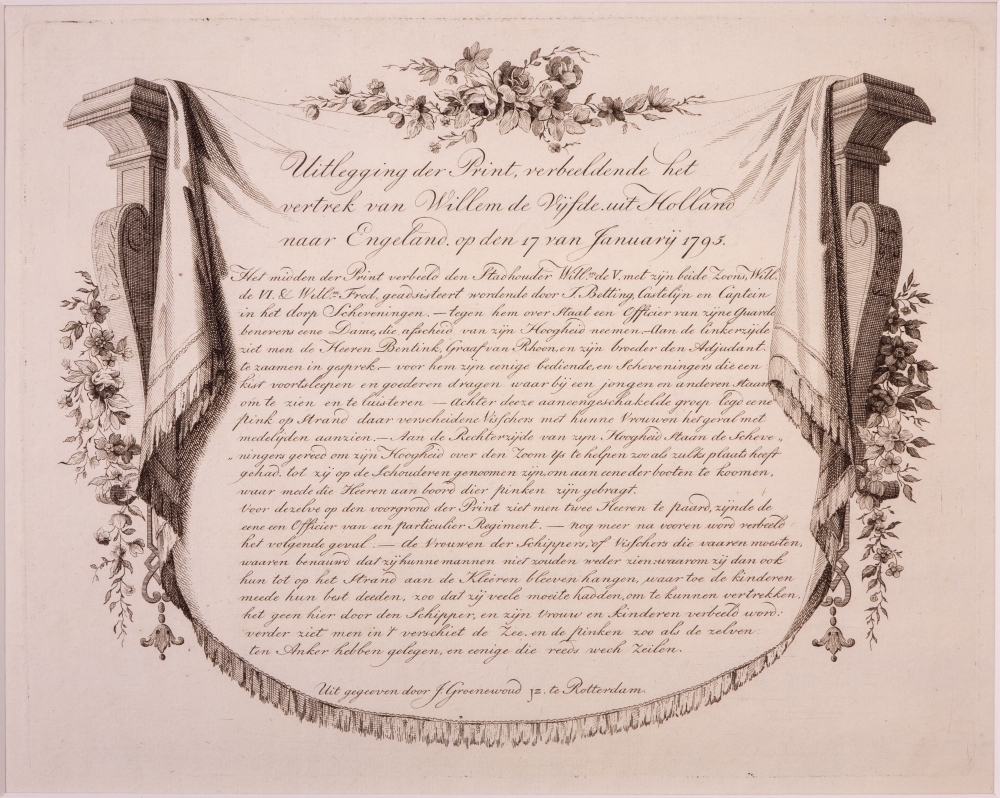 Uitlegging der Print, verbeeldende het
vertrek van Willem de Vijfde uit Holland
naar Engeland. op den 17 van Januarij 1795.
Het midden der Print verbeeld den Stadhouder Will.m de V. met zijn beide Zoons, Will.
de VI. & Will.m Fred. geadsisteert wordende door J. Betting, Castelijn en Captein
in het dorp Scheveningen. — tegen hem over Staat een Officier van zijne Guarde
benevens eene Dame, die afscheid van zijn Hoogheid neemen. — Aan de linkerzijde
ziet men de Heeren Bentink, Graaf van Rhoon, en zijn broeder den Adjudant.
te zaamen in gesprek, — voor hem zijn eenige bediende, en Scheveningers die een
kist voortsleepen en goederen dragen waar bij een jongen en anderen Staan
om te zien en te luisteren — Achter deeze aaneengeschakelde groep legd eene
pink op Strand daar verscheidene Visschers met hunne Vrouwen het geval met
medelijden aanzien. — Aan de Rechterzijde van zyn Hoogheid Staan de Scheve„
„ningers gereed om zijn Hoogheid over den Zoom ijs te helpen zoo als zulks plaats heeft
gehad. tot zij op de Schouderen genoomen zijn, om aan eene der booten te koomen,
waar mede die Heeren aan boord dier pinken zijn gebragt.
Voor dezelve op den voorgrond der Print ziet men twee Heeren te paard, zijnde de
eene een Officier van een particulier Regiment. — nog meer na vooren word verbeeld
het volgende geval. — de Vrouwen der Schippers, of Visschers die vaaren moesten,
waaren benauwd dat zij hunne mannen niet zouden weder zien: waarom zij dan ook
hun tot op het Strand aan de Kleêren bleeven hangen, waar toe de kinderen
meede hun best deeden, zoo dat zij veele moeite hadden, om te kunnen vertrekken.
het geen hier door den Schipper, en zijn Vrouw en Kinderen verbeeld word:
verder ziet men in 't verschiet de Zee. en de pinken zoo als de zelven
ten Anker hebben gelegen, en eenige die reeds wech Zeilen.
Uit gegeeven door J. Groenewoud Jz. te Rotterdam.